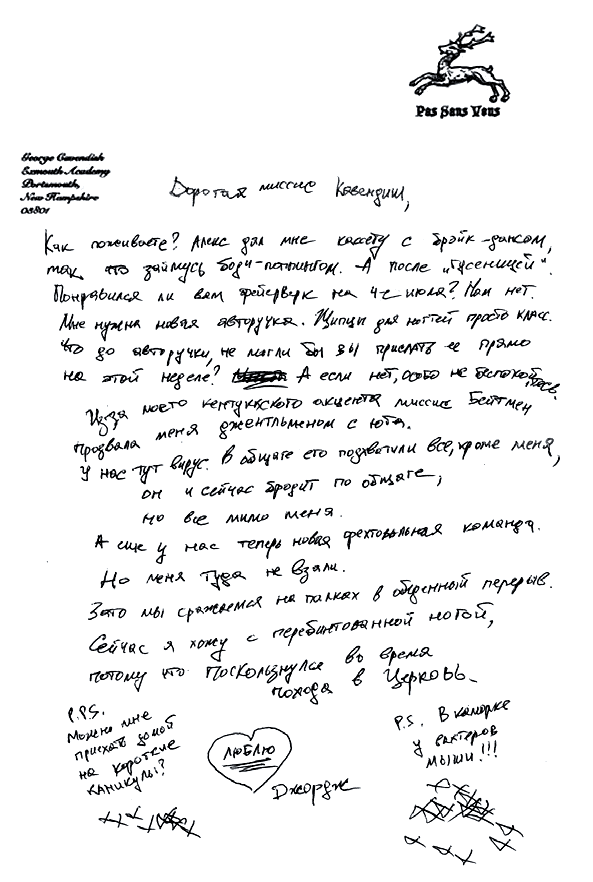 Pas Sans Vous
George Cavendish
Exmouth Academy
Portsmouth,
New Hampshire
03801
Дорогая миссис Кавендиш,
Как поживаете? Алекс дал мне кассету с брэйк-дансом,
так что займусь боди-поппингом. А после „Гусеницей“.
Понравился ли вам фейерверк на 4-е июля? Нам нет.
Мне нужна новая авторучка. Щипцы для ногтей просто класс.
Что до авторучки, не могли бы вы прислать ее прямо
на этой неделе? А если нет, особо не беспокойтесь.
Из-за моего кентуккского акцента миссис Бейтмен
прозвала меня джентльменом с юга.
У нас тут вирус. В общаге его подхватили все, кроме меня,
он и сейчас бродит по общаге,
но все мимо меня.
А еще у нас теперь новая фехтовальная команда.
Но меня туда не взяли.
Зато мы сражаемся на палках в обеденный перерыв.
Сейчас я хожу с перебинтованной ногой,
потому что поскользнулся во время
похода в Церковь.
P.S. В каморке
у вахтеров
мыши!!!
P.P.S.
Можно мне
приехать домой
на короткие
каникулы?
ЛЮБЛЮ
Джордж